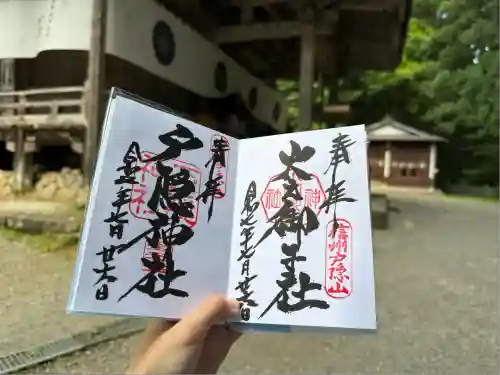 奉拝
信州戸隠山
火之御子社
令和二年七月廿六日
奉拝
戸隠神社
令和二年七月廿六日